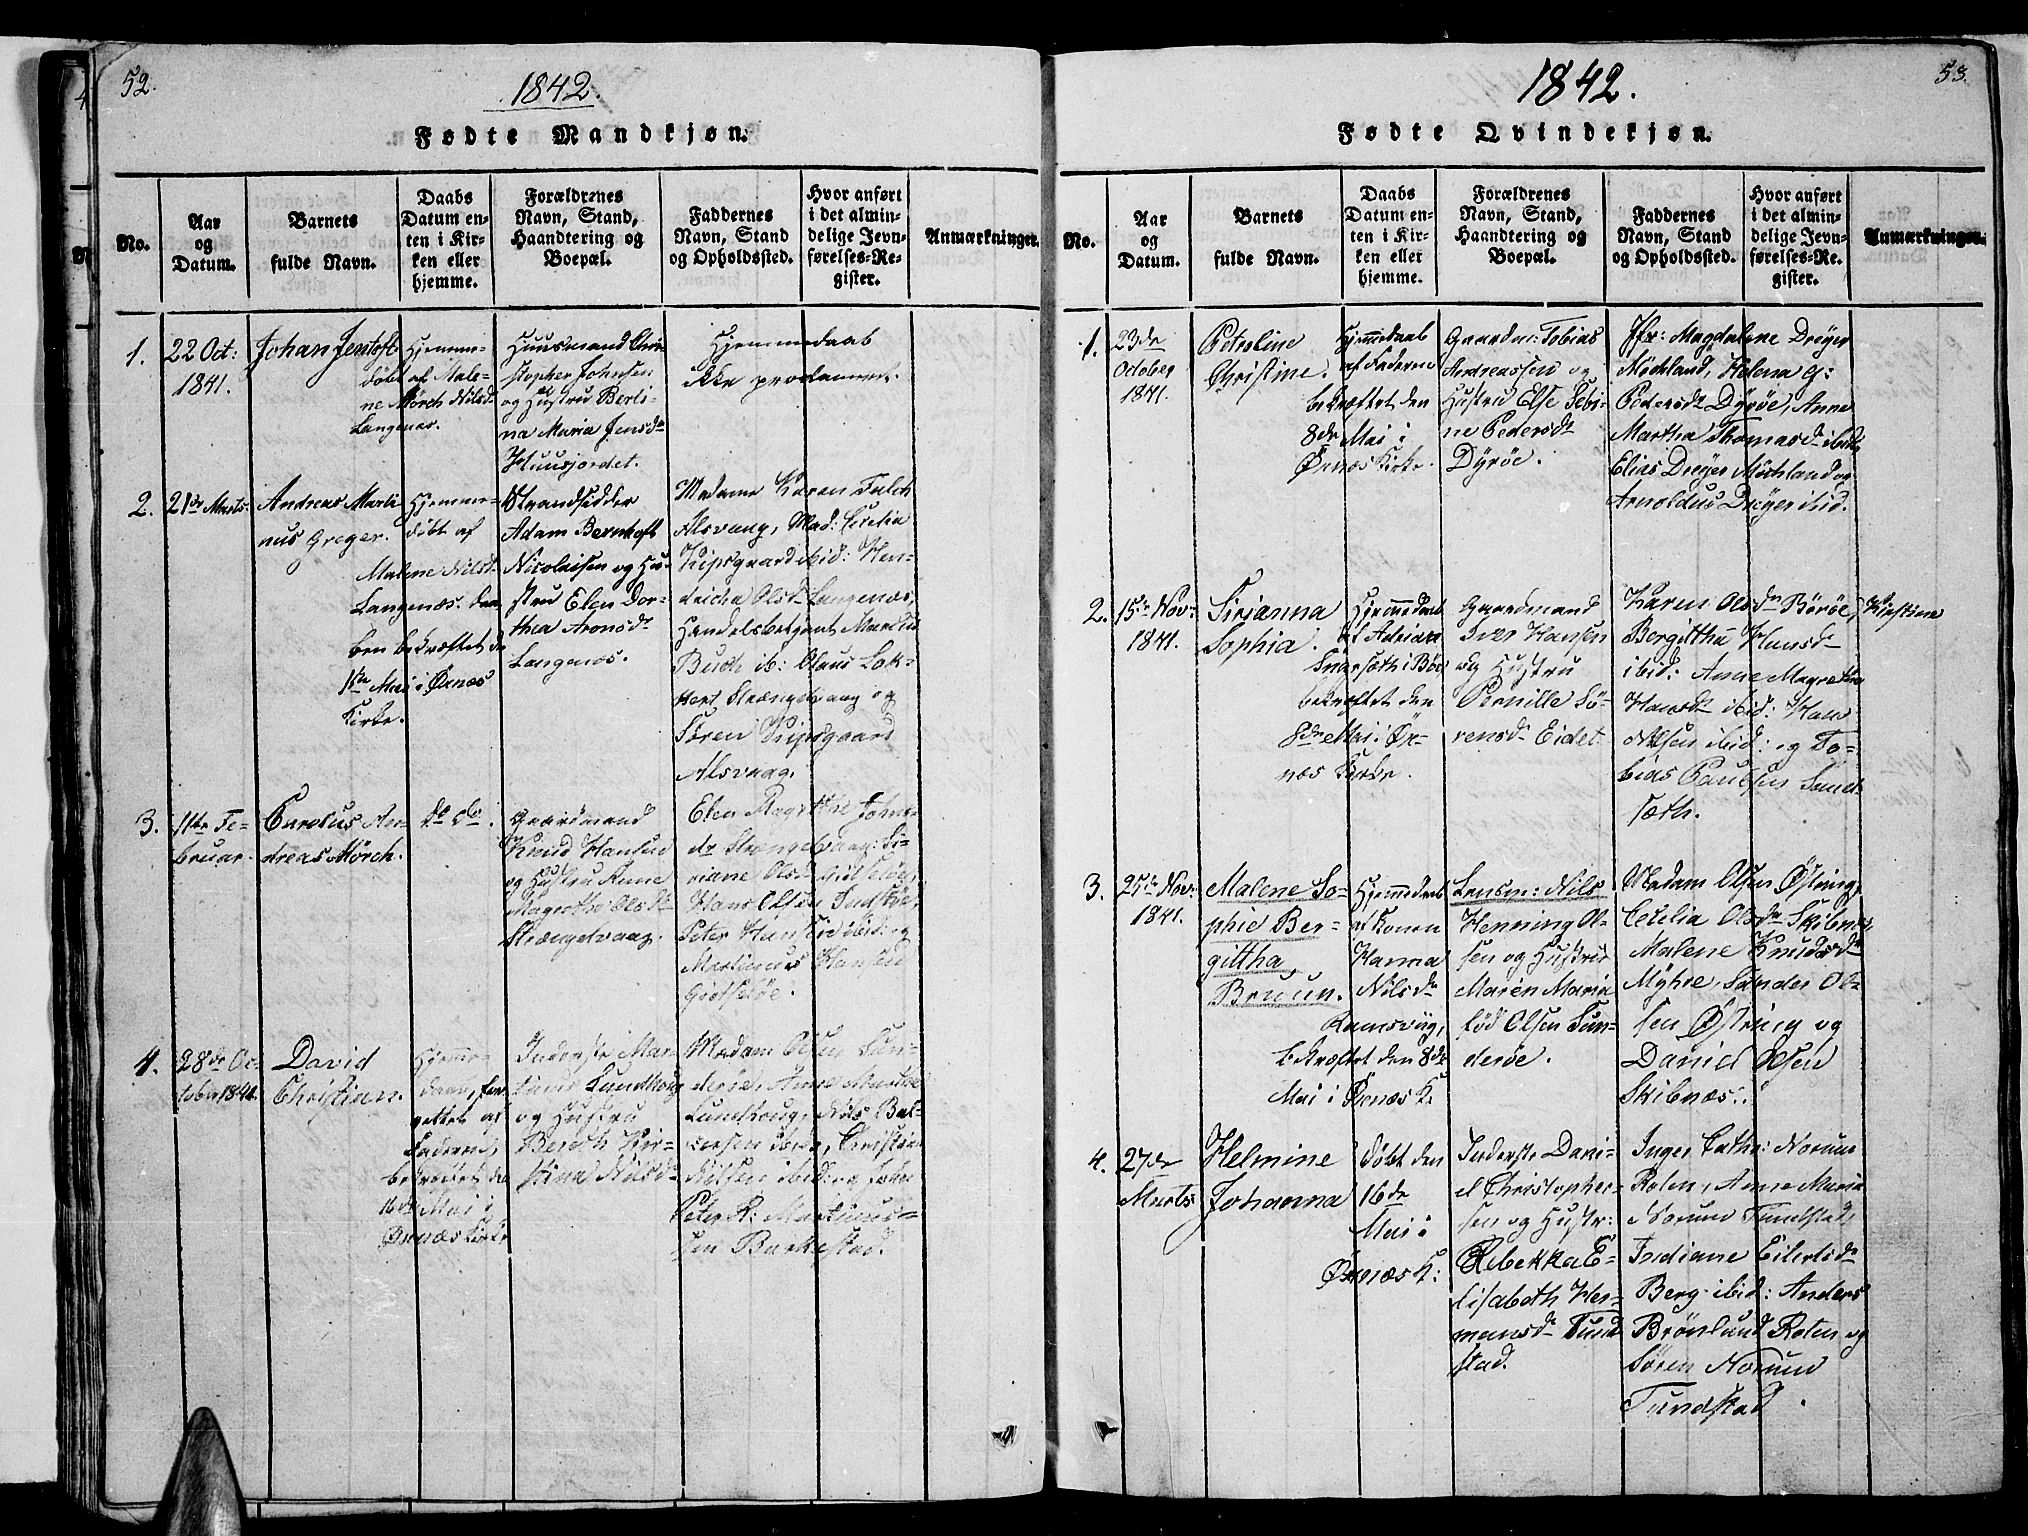 52.
1842.
Fødte Mandkjøn.
No.
Aar
og
Datum.
Barnets
fulde Navn.
Daabs
Datum en-
ten i Kir-
ken eller
hjemme.
Forældrenes
Navn, Stand,
Haandtering og
Boepæl.
Faddernes
Navn, Stand
og Opholdssted.
Hvor anført
i det almin-
delige Jevn-
førelses-Re-
gister.
Anmærkninger.
1.
22 Oct:
1841.
Johan Jentoft
Hjemme-
døbt af Male-
ne Mörch Nilsd.
Langenæs.
Huusmand Chri-
stopher Johnsen
og Hustru Berli-
na Maria Jensdr
Huusjordet.
Hjemmedaab
ikke
2.
21de Marts.
Andreas Marti-
nus Greger.
Hjemme-
døbt af
Malene Nilsd.
Langenæs. Daa-
ben bekræftet d.
1ste Mai i Örnæs
Kirke.
Strandsidder
Adam Bernhoft
Nicolaisen og Hu-
stru Elen Dor-
thea Aronsdr
Langenæs.
Madame Karen Falch
Alsvaag, Mad: Cecelia
Kipsgaard ibid: Hen-
dricha Olsdr Langenæs,
Handelsbetjent Martin
Buch ib: Olaus Lok-
kert Strængelvaag og
Søren Kipsgaard
Alsvaag.
3.
11te Fe-
bruar.
Carolus An-
dreas Mörch.
do do.
Gaardmand
Knud Hansen
og Hustru Anne
Magrethe Olsdr
Strængelvaag.
Elen Magrethe Johns-
dr Strængelvaag: Si-
riane Olsdr
Hans Olsen
Peter Hansen ibid: og
Martinus Hansen
4.
28de Oc-
tober 1841.
David
Christian.
Hjemme-
daab, for-
rettet af
Faderen,
bekræftet den
16de Mai i
Örnæs Kirke
Inderste Mar-
Lundhoug
og Hustru
Bereth Kir-
stina Nilsdr
Madam Olsen Sun-
deröe, Anne Martha
Lundhoug, Nils Bal-
sersen ibid:, Christian
Nilsen ibid: og Johan
Peter R: Martinus-
sen Barkestad.
1842.
53.
Fødte Qvindekjøn.
No.
Aar
og
Datum.
Barnets
fulde Navn.
Daabs
Datum en-
ten i Kir-
ken eller
hjemme.
Forældrenes
Navn, Stand,
Haandtering og
Boepæl.
Faddernes
Navn, Stand
og Opholdssted.
Hvor anført
i det almin-
delige Jevn-
førelses-Re-
gister.
Anmærkninger.
1.
23de
October
1841.
Peterline
Christine.
Hjemmedaab
af Faderen
bekræftet den
8de Mai i
Örnæs Kirke.
Gaardm: Tobias
Andreassen og
Hustru Else Sebi-
ne Pedersdr
Dyröe.
Jfr: Magdalene Dreyer
Möchland, Helena G:
Pedersdr Dyröe, Anne
Martha Thomasdr ibid:
Elias Dreyer Möchland og
Arnoldus Dreyer ibid.
2.
15de Nov:
1841.
Sirianna
Sophia.
Hjemmedaab
af Adriana
Ingersæth i Böe
bekræftet den
8de Mai i Ör-
næs Kirke.
Gaardmand
Iver Hansen
og Hustru
Pernille Sö-
rensdr Eidet.
Karen Olsdr Böröe,
Bergittha Hansdr
ibid: Anne Magretha
Hansdr ibid: Hans
Nilsen ibid: og To-
bias Paulsen Sand-
sæth.
Kirstine
3.
25de Nov:
1841.
Malene So-
phie Ber-
gittha
Bruun.
Hjemmedaab
af Konen
Hanna
Nilsdr
Ramsviig,
bekræftet den 8de
Mai i Örnæs K.
Lensm: Nils
Henning Ol-
sen og Hustru
Maren Maria
föd Olsen Sun-
deröe.
Madam Olsen Östring,
Cecilia Olsdr Skibnæs,
Malene Knudsdr
Myhre, Sander Ol-
sen Östring og
David Olsen
Skibnæs.
4.
27de
Marts
Helmine
Johanna
Döbt den
16de
Mai i
Örnæs K:
Inderste Dani-
el Christopher-
sen og Hustr:
Rebekka E-
lisabeth Her-
mansdr Tund-
stad.
Inger Cathr: Norum
Roten, Anne Maria
Norum Tundstad,
Indiane Eilertsdr
Berg ibid: Anders
Brönlund Roten og
Sören Norum
Tundstad.